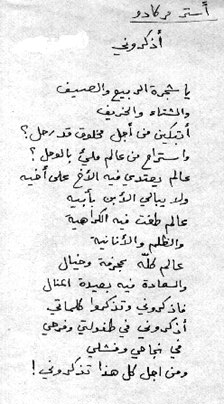 أستر مركادو
أذكروني
يا شجرة الربيع والصيف
والشتاء والخريف
أتبكين من أجل مخلوق قد رحل؟
واستراح من عالم مليء بالوحل؟
عالم يعتدي فيه الأخ على أخيه
ولا يبالي الأبن بأبيه
عالم طغت فيه الكراهية
والظلم والأنانية
عالم كلّه عجرفة وخيال
والسعادة فيه بعيدة المنال
فاذكروني وتذكروا كلماتي
أذكروني في طفولتي وفرحي
في نجاحي وفشلي
ومن اجل كل هذا تذكروني!